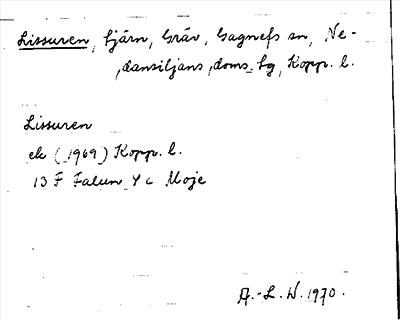 Lissuren, tjärn, Gräv, Gagnefs sn, Ne-
dansiljans doms. tg, Kopp. l.
Lissuren
ek (1969) Kopp. l.
13 F Falun 4 c Moje
A.-L. W. 1970.